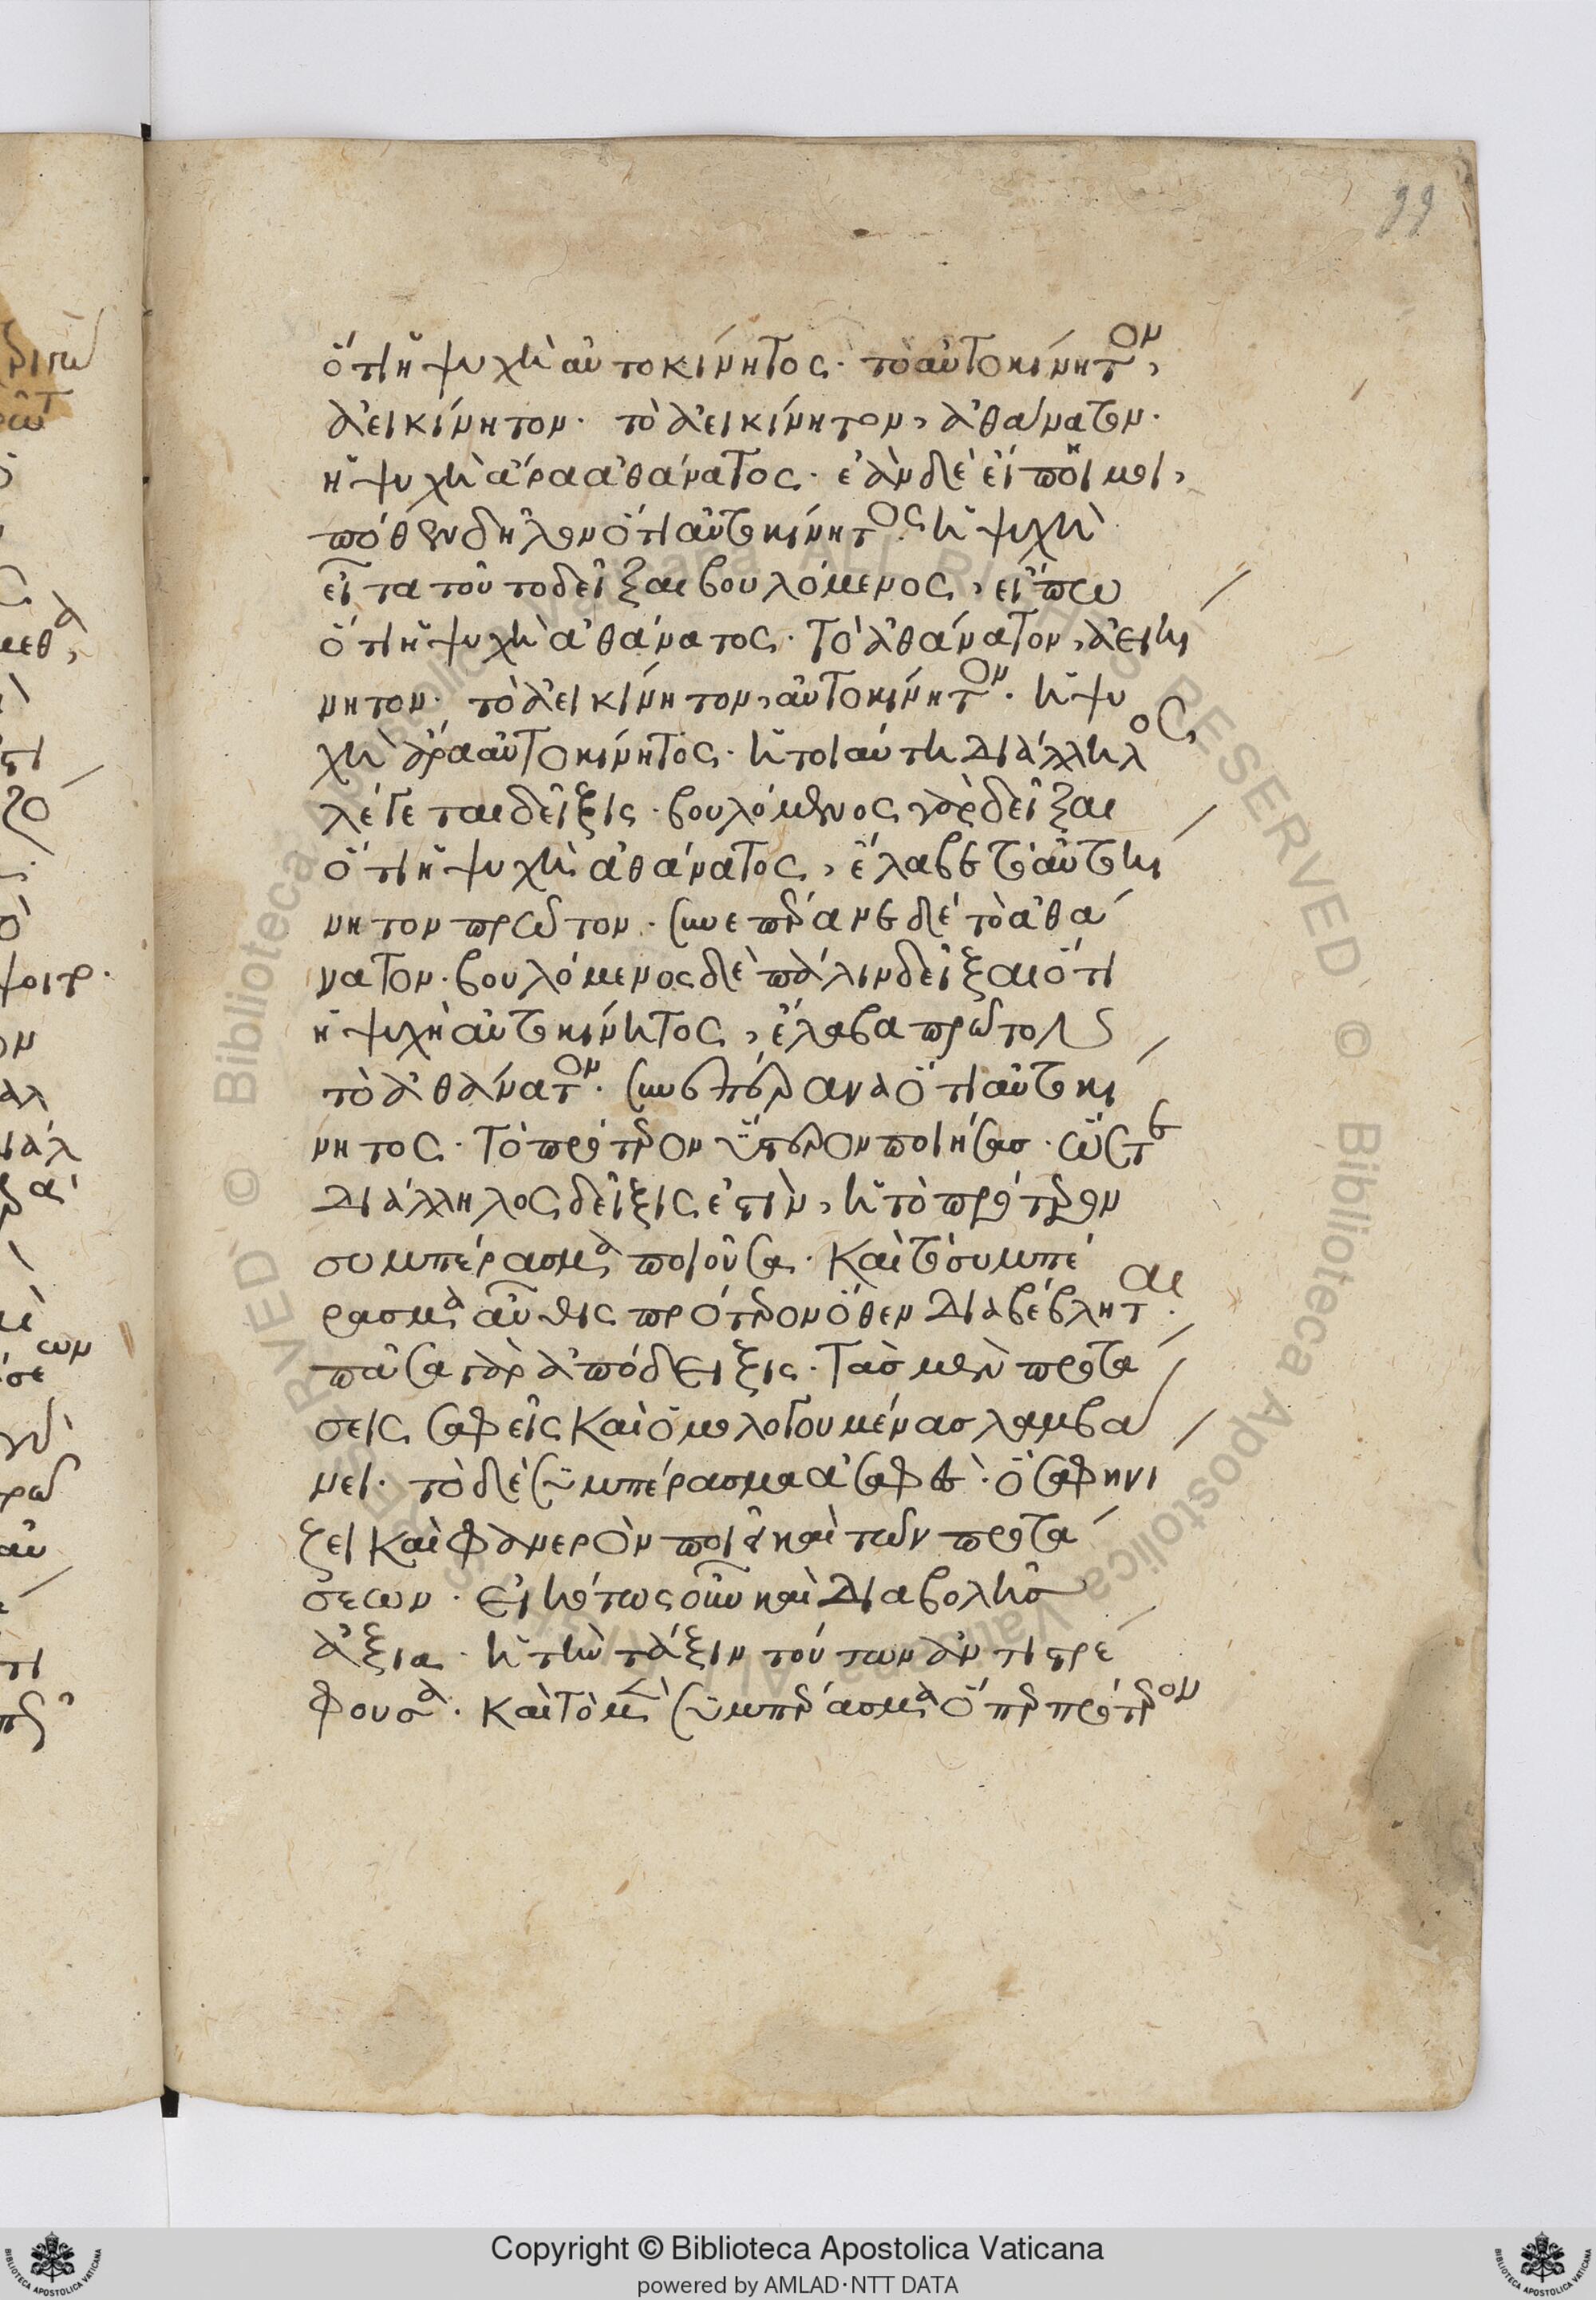 99
ὅτι ἡ ψυχὴ αὐτοκίνητος· τὸ αὐτοκίνητον,
ἀεικίνητον· τὸ ἀεικίνητον, ἀθάνατον·
ἡ ψυχὴ ἄρα ἀθάνατος· ἐὰν δὲ εἴποι μοι,
πόθεν δῆλον ὅτι αὐτοκίνητος ἡ ψυχὴ
εἶτα τοῦτο δεῖξαι βουλόμενος, εἴπω
ὅτι ἡ ψυχὴ ἀθάνατος· τὸ ἀθάνατον, ἀεικί
νητον· τὸ ἀεικίνητον, αὐτοκίνητον· ἡ ψυ
χὴ ἄρα αὐτοκίνητος· ἡ τοιαύτη διάλληλος,
λέγεται δεῖξις· βουλόμενος γὰρ δεῖξαι
ὅτι ἡ ψυχὴ ἀθάνατος, ἔλαβε τὸ αὐτοκί
νητον πρῶτον· συνεπέρανε δὲ τὸ ἀθά
νατον· βουλόμενος δὲ πάλιν δεῖξαι ὅτι
ἡ ψυχὴ αὐτοκίνητος, ἔλαβα πρῶτον
τὸ ἀθάνατον· συνεπέρανα ὅτι αὐτοκί
νητος· τὸ πρότερον ὕστερον ποιήσας· ὥστε
διάλληλος δεῖξις ἐστὶν, ἡ τὸ πρότερον
συμπέρασμα ποιοῦσα· καὶ τὸ συμπέ
ρασμα αὖθις πρότερον ὅθεν διαβέβληται·
πᾶσα γὰρ ἀπόδειξις· τὰσ μὲν προτά
σεις σαφεῖς καὶ ὁμολογουμένασ λαμβά
νει· τὸ δὲ συμπέρασμα ἀσαφὲς· ὃ σαφηνί
ζει καὶ φανερὸν ποιεῖ καὶ τῶν προτά
σεων· εἰκότως οὖν καὶ διαβολῆσ
ἀξία· ἡ τὴν τάξιν τούτων ἀντιστρέ
φουσα· καὶ τὸ μὲν συμπέρασμα ὅπερ πρότερον
Copyright © Biblioteca Apostolica Vaticana
powered by AMLAD·NTT DATA